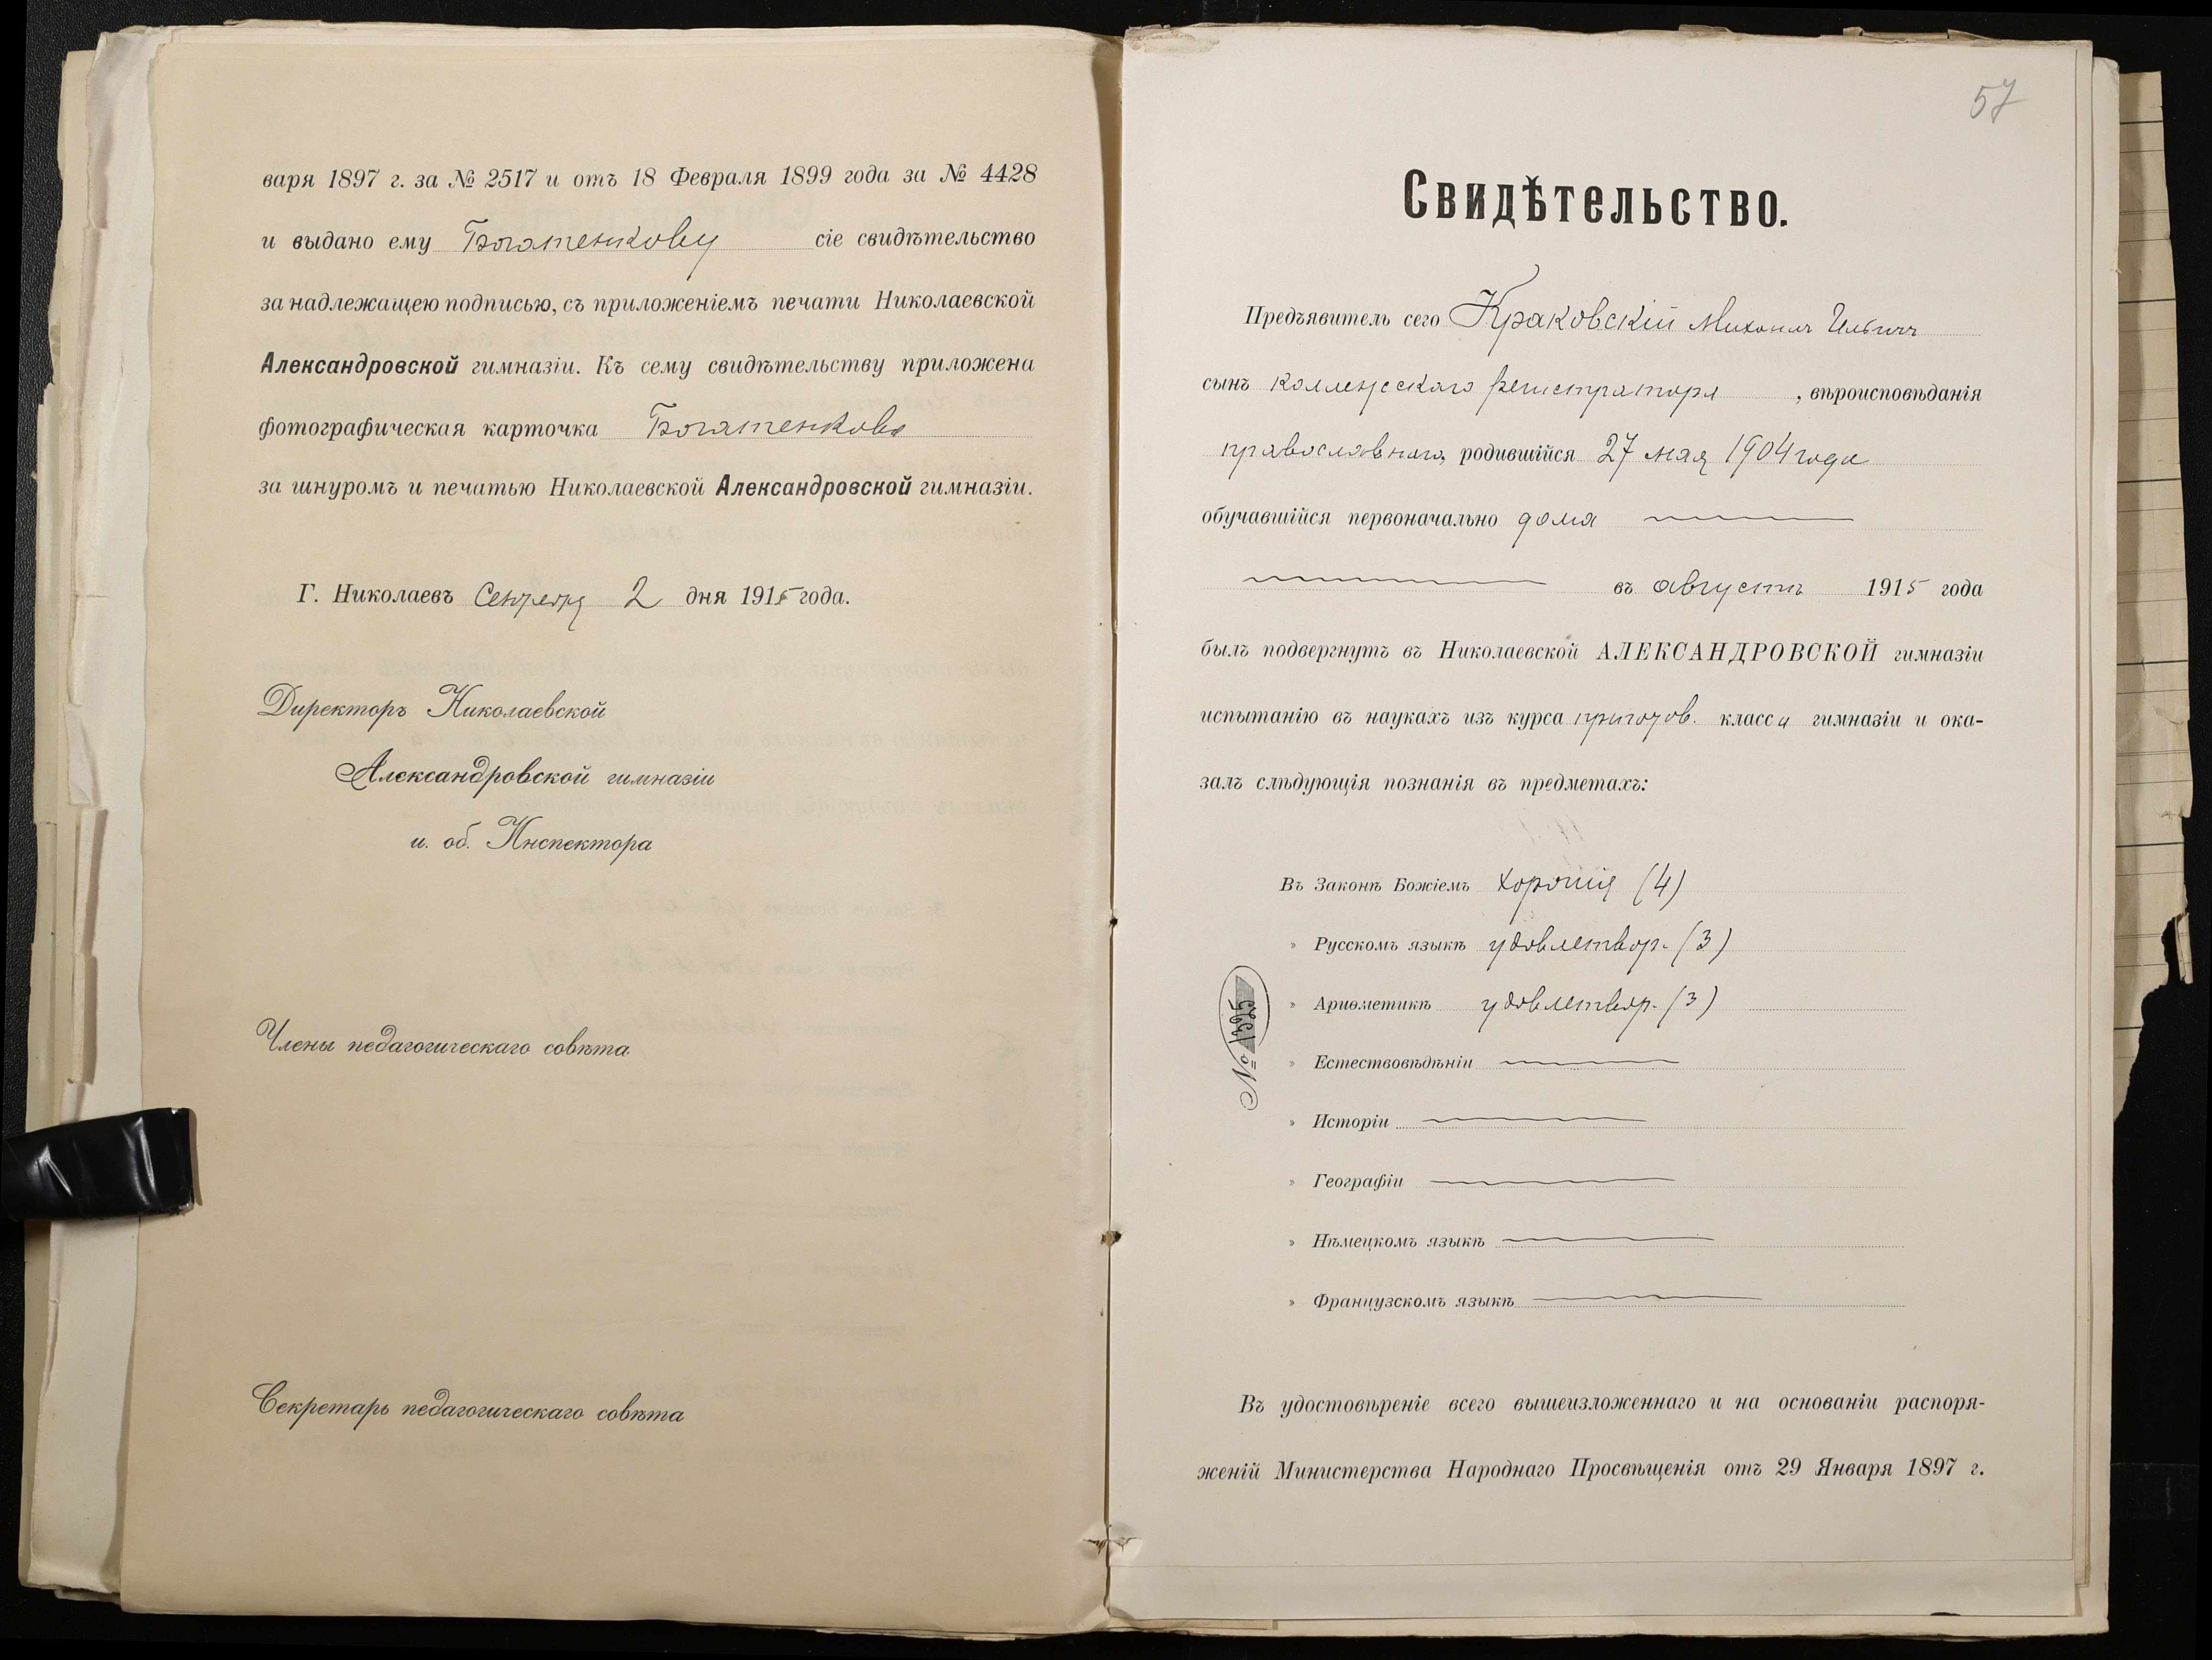 варя 1897 г. за № 2517 и отъ 18 Февраля 1899 года за № 4428
и выдано ему Богатенкову сіе свидѣтельство
за надлежащею подписью, съ приложеніемъ печати Николаевской
Александровской гимназіи. Къ сему свидѣтельству приложена
фотографическая карточка Богатенкова
за шнуромъ и печатью Николаевской Александровской гимназіи.
Г. Николаевъ Сентября 2 дня 1915 года.
Директоръ Николаевской
Александровской гимназіи
и. об. Инспектора
Члены педагогическаго совѣта
Секретарь педагогическаго совѣта
57
Свидѣтельство.
Предъявитель сего Краковскій Михаилъ Ильичъ
сынъ коллежскаго регистратора, вѣроисповѣданія
православнаго, родившійся 27 мая 1904 года
обучавшійся первоначально дома
въ августѣ 1915 года
былъ подвергнутъ въ Николаевской АЛЕКСАНДРОВСКОЙ гимназіи
испытанію въ наукахъ изъ курса пригот. класса гимназіи и ока-
залъ слѣдующія познанія въ предметахъ:
Въ Законѣ Божіемъ хорошія (4)
» Русскомъ языкѣ удовлетвор. (3)
» Ариѳметикѣ удовлетвор. (3)
» Естествовѣдѣніи
» Исторіи
» Географіи
» Нѣмецкомъ языкѣ
» Французскомъ языкѣ
№ 1325
Въ удостовѣреніе всего вышеизложеннаго и на основаніи распоря-
женій Министерства Народнаго Просвѣщенія отъ 29 Января 1897 г.